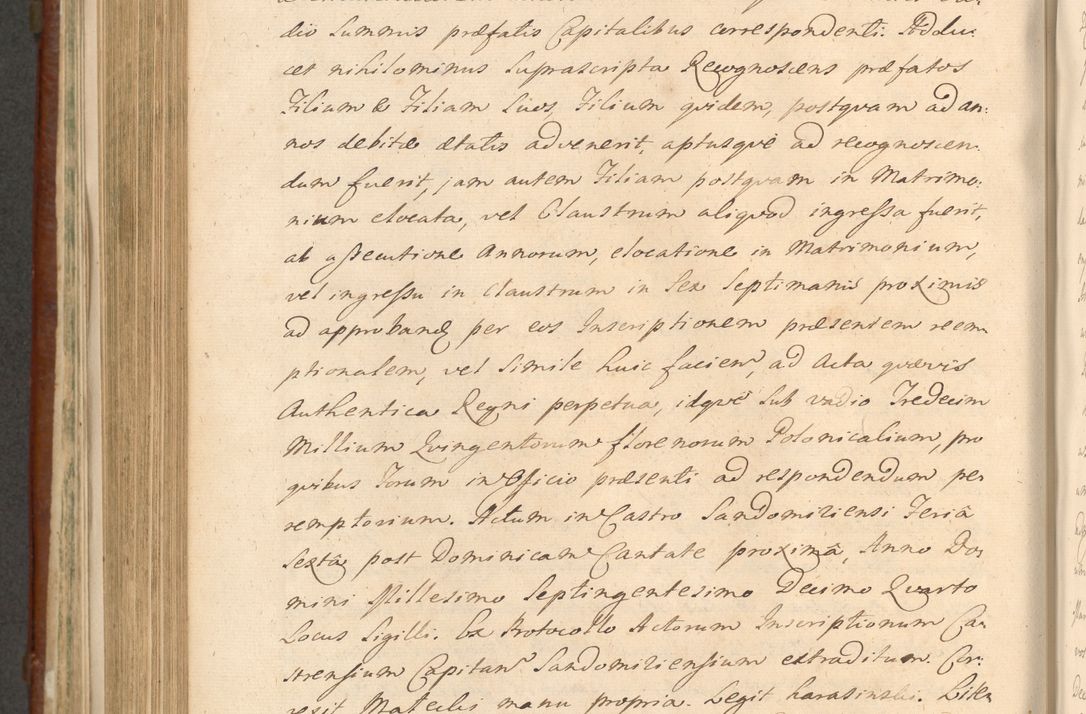 dio Summis præfatis Capitalibus correspondenti. Addu:
cet nihilominus Suprascripta Recognoscens præfatos
Filium & Filiam Suos, Filium qvidem, postqvam ad an:
nos debitæ ætatis advenerit, aptusqve ad recognoscen:
dum fuerit, jam autem Filiam postqvam in Matrimo:
nium elocata, vel Claustrum aliqvod ingressa fuerit,
ab assecutione Annorum, elocatione in Matrimonium,
vel ingressu in Claustrum in Sex Septimanis proximis
ad approband per eos Inscriptionem præsentem reem
ptionalem, vel Simile huic facien, ad Acta qvævis
Authentica Regni perpetua, idqve Sub vadio Tredecim
Millium Qvingentorum florenorum Polonicalium, pro
qvibus Forum in Officio præsenti ad respondendum pe
remptorium. Actum in Castro Sandomiriensi Feria
Sexta post Dominicam Cantate proxima, Anno Do
mini Millesimo Septingentesimo Decimo Qvarto
Locus Sigilli. Ex Protocollo Actorum Inscriptionum Ca
strensium Capitan Sandomiriensium extraditum. Cor:
rexit manu propria. Legit Karasinski. Liter